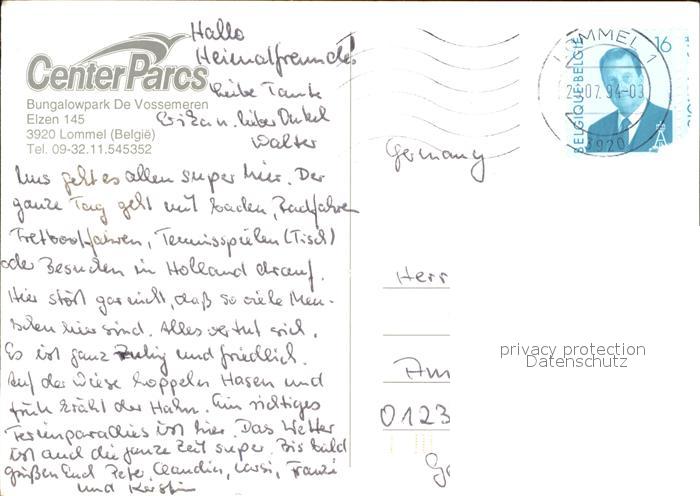 Hallo
Heimatfreunde!
CenterParcs
Bungalowpark De Vossemeren
Elzen 145
3920 Lommel (België)
Tel. 09-32.11.545352
Liebe Tante
u. lieber Onkel
Walter
Uns geht es allen super hier. Der
ganze Tag geht mit baden, Radfahren
Tretbootfahren, Tennisspielen (Tisch)
oder Besuchen in Holland drauf.
Hier stört gar nicht, daß so viele Men-
schen hier sind. Alles vertut sich.
Es ist ganz ruhig und friedlich.
Auf der Wiese hoppeln Hasen und
früh kräht der Hahn. Ein richtiges
Ferienparadies ist hier. Das Wetter
ist auch die ganze Zeit super. Bis bald
grüßen Euch Peter, Claudia, Franzi
und Kerstin
LOMMEL 1
07.94-03
3920
BELGIQUE-BELGIË
16
Germany
Herr
Am
0123
privacy protection
Datenschutz